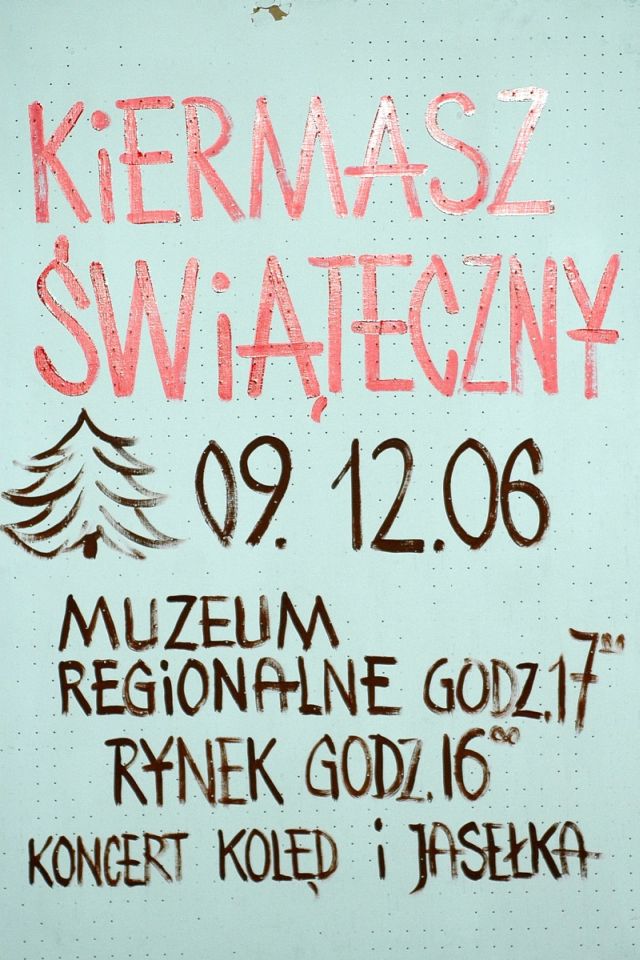 KiERMASZ
ŚWiĄTECZNY
09.12.06
MUZEUM
REGiONALNE GODZ.17⁰⁰
RYNEK GODZ.16⁰⁰
KONCERT KOLĘD i JASEŁKA